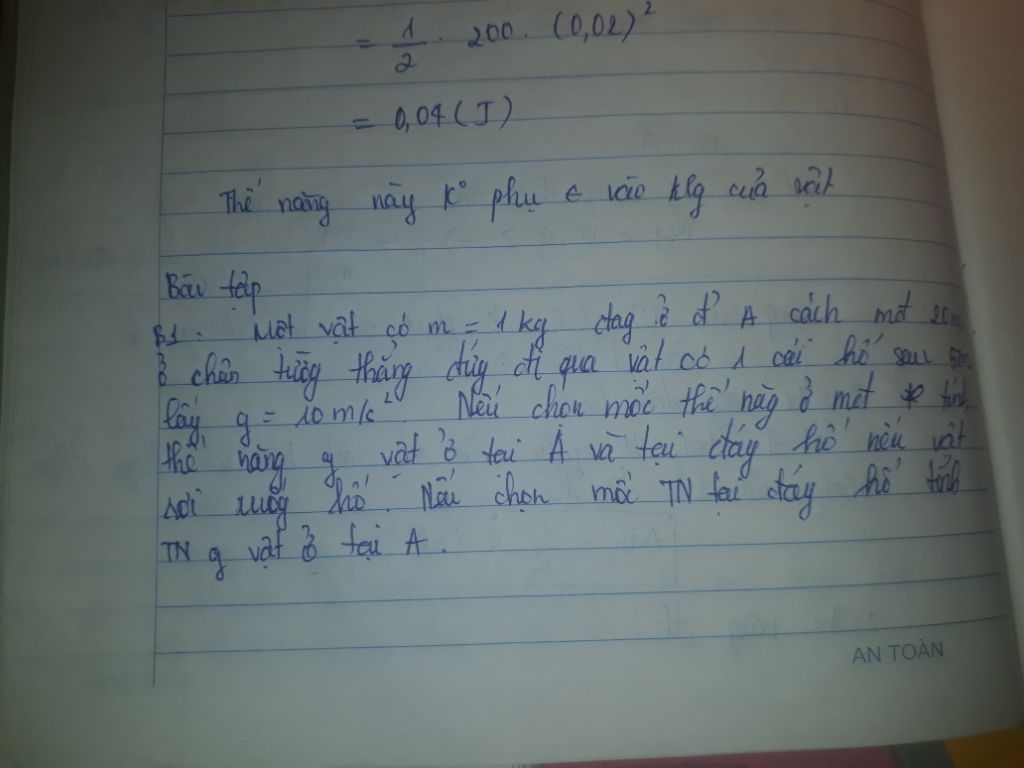 = 1/2 . 200 . (0,02)²
= 0,04 (J)
Thế năng này K° phụ ∈ vào klg của vật
Bài tập
B1. Một vật có m = 1 kg đag ở đ' A cách mđ 20m
ở chân tườg thẳng đứg đi qua vật có 1 cái hố sau 5m
lấy g = 10 m/s². Nếu chọn mốc thế năg ở mđ tính
thế năng vật ở tại A và tại đáy hố nếu vật
rơi xuốg hố. Nếu chọn mốc TN tại đáy hố tính
TN vật ở tại A.
AN TOÀN